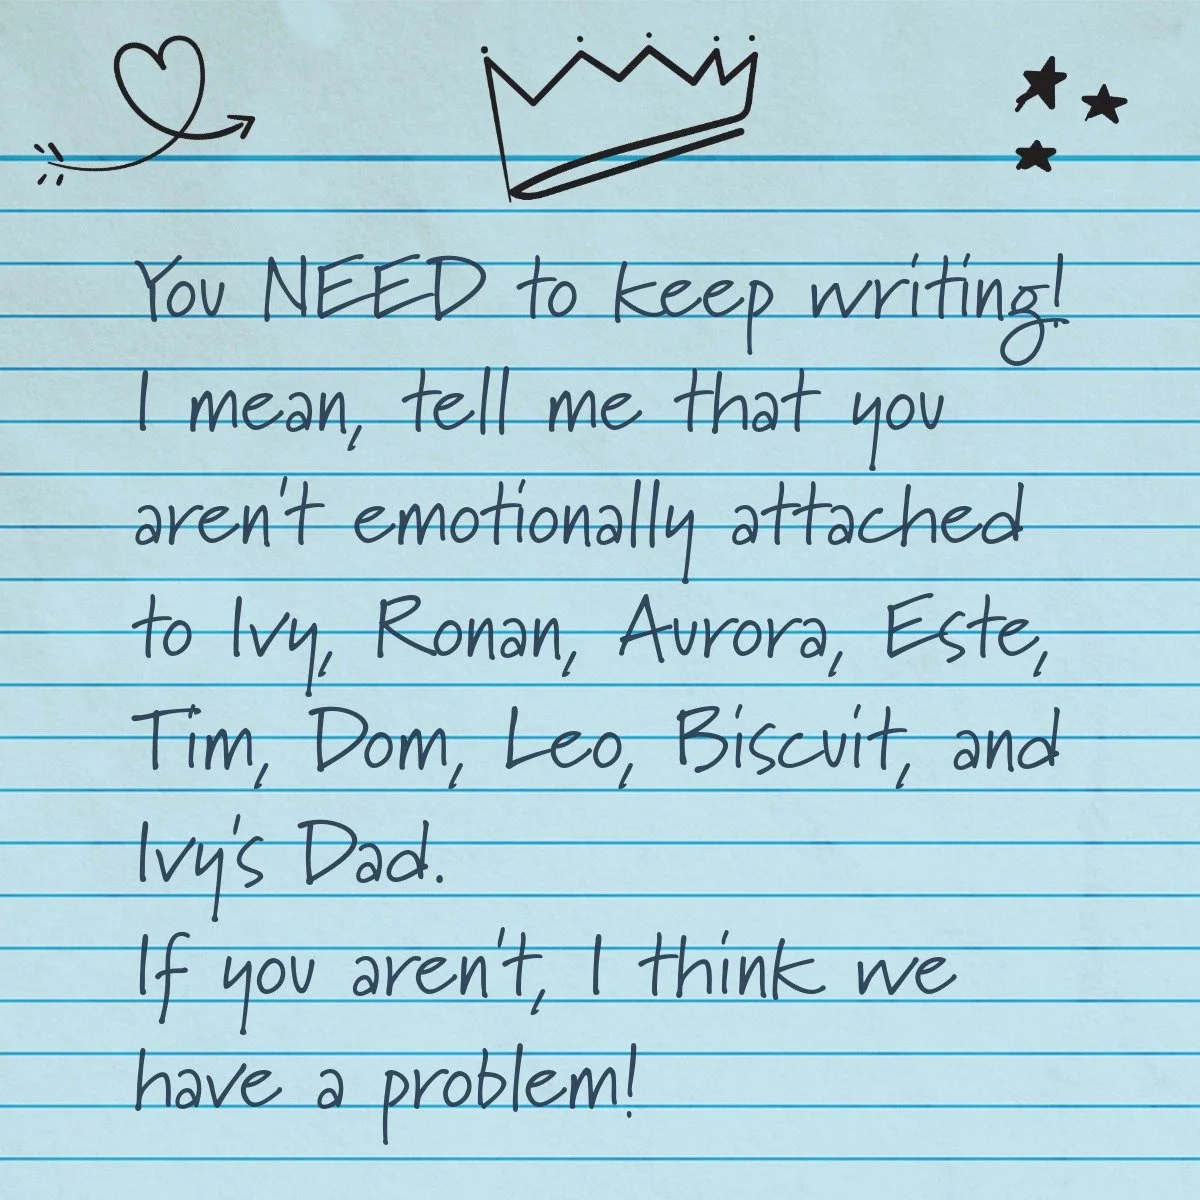 You NEED to keep writing!
I mean, tell me that you
aren't emotionally attached
to Ivy, Ronan, Aurora, Este,
Tim, Dom, Leo, Biscuit, and
Ivy's Dad.
If you aren't, I think we
have a problem!